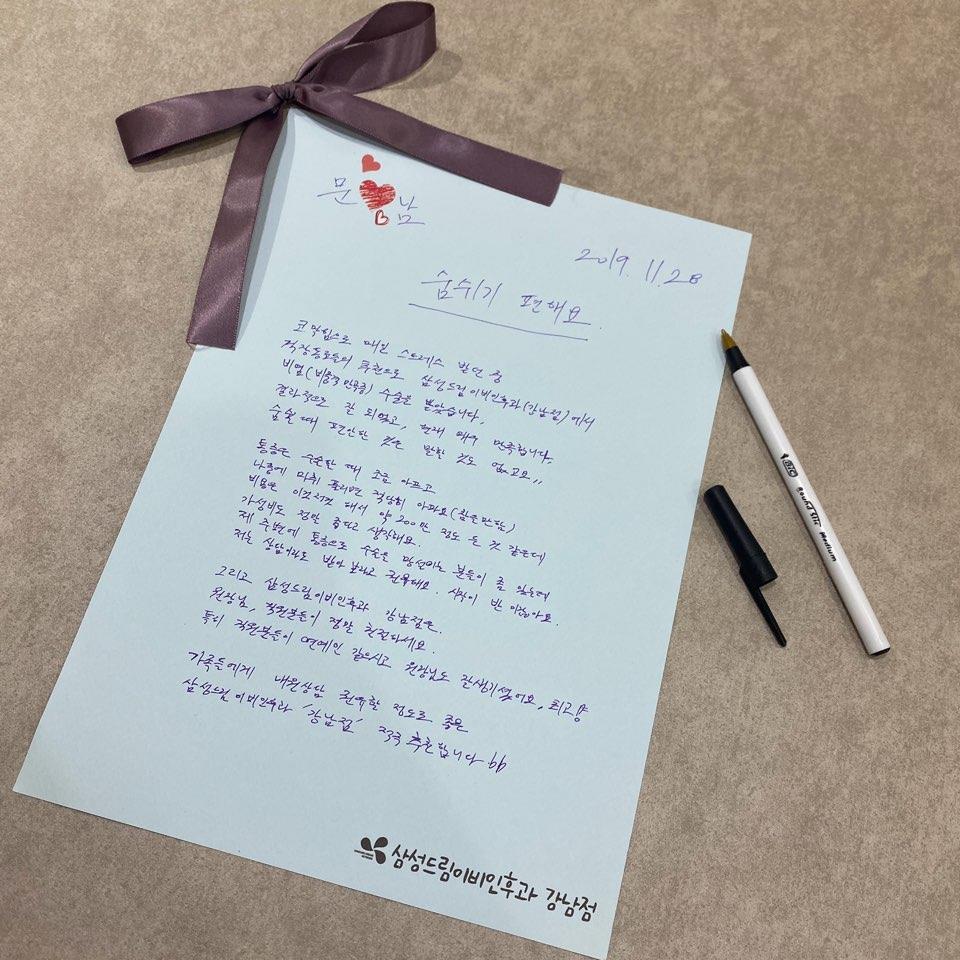 문 남
2019. 11. 28
숨쉬기 편해요.
코막힘으로 매번 스트레스 받던 중
직장동료들의 추천으로 삼성드림이비인후과(강남점)에서
비염(비중격만곡증) 수술을 받았습니다.
결과적으로 잘 되었고, 현재 매우 만족합니다.
숨쉴 때 편안한 것은 말할 것도 없고요,,
통증은 수술한 때 조금 아프고
나중에 마취 풀리면 적당히 아파요(참을만함)
비용은 이것저것 해서 약 200만 정도 든 것 같은데
가성비도 정말 좋다고 생각해요.
제 주변에 통증으로 수술을 망설이는 분들이 좀 있는데
저는 상담이라도 받아 보라고 권유해요. 시작이 반이잖아요.
그리고 삼성드림이비인후과 강남점은.
원장님, 직원분들이 정말 친절하세요.
특히 직원분들이 연예인 같으시고 원장님도 잘생기셨어요. 최고
가족들에게 내원상담 권유할 정도로 좋은
삼성드림이비인후과 '강남점' 적극 추천합니다 bb
삼성드림이비인후과 강남점
BIC
Round Stic Medium